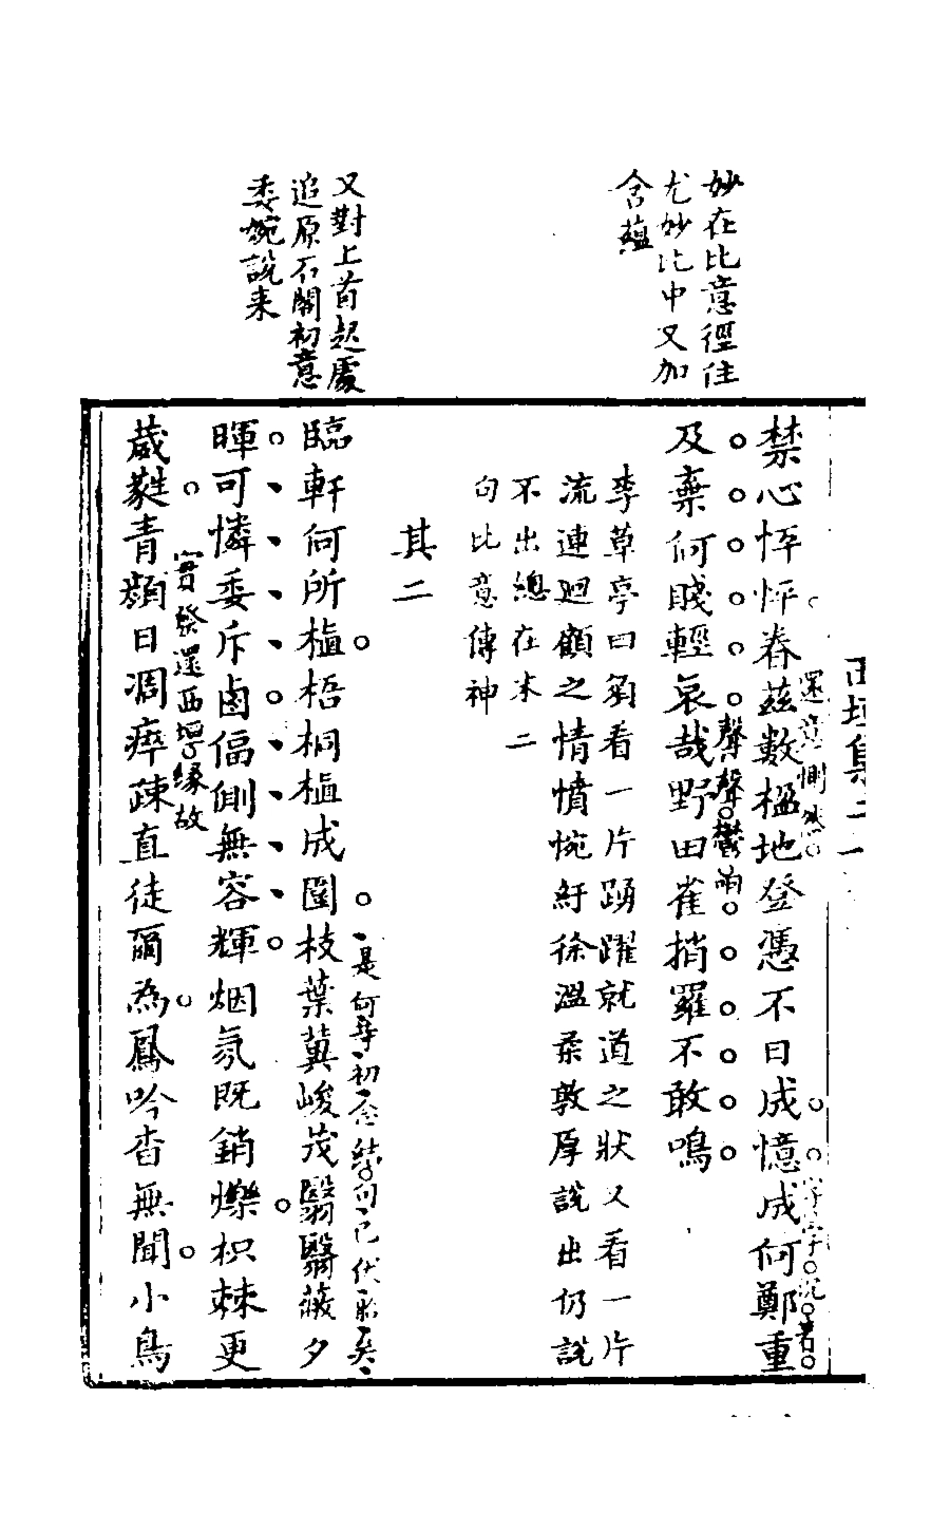 妙在比意徑住
尤妙比中又加
含蘊
又對上首起處
追原石關初意
委婉說来
禁心怦怦眷茲數楹地登憑不日成憶成何鄭重
字字沉著
及棄何賤輕哀哉野田雀捎羅不敢鳴
聲聲鬱
李草亭曰劉看一片踴躍就道之狀又看一片
流連迴顧之情憤惋紆徐溫柔敦厚說出仍說
不出總在末二
句比意傳神
其二
臨軒何所植梧桐植成圍枝葉冀峻茂翳翳蔽夕
暉可憐委斥鹵偪側無容輝烟氛既銷爍枳棘更
葳蕤青顏日凋瘁疎直徒爾為鳳吟杳無聞小鳥
還西緣故